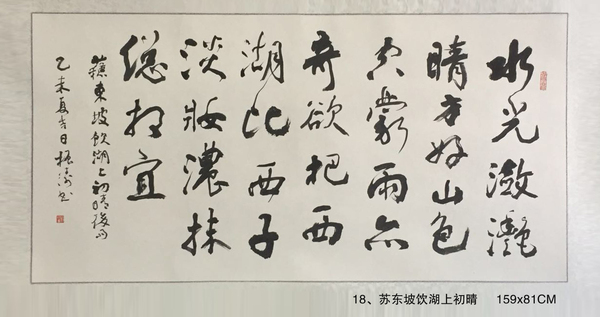 水光潋灩
晴方好山色
空蒙雨亦
奇欲把西
湖比西子
淡妝濃抹
總相宜
蘇東坡飲湖上初晴後雨
乙未夏吉日 书
18、苏东坡饮湖上初晴 159x81CM